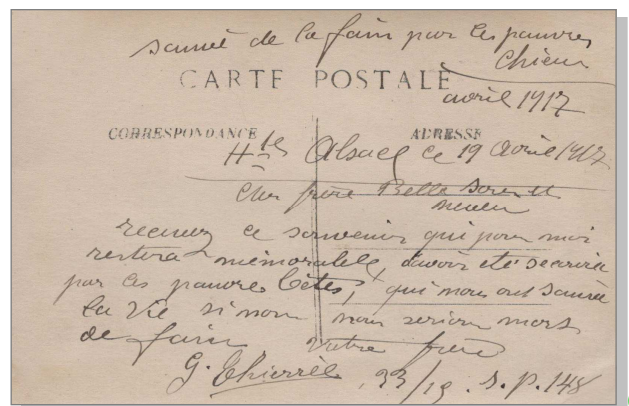 sauvé de la faim par les pauvres
chien
CARTE POSTALE
avril 1917
CORRESPONDANCE ADRESSE
Htes Alsace ce 19 Avril 1917
Cher frère Belle soeur et
neveu
recevez ce souvenir qui pour moi
restera mémorable, davoir été secouru
par ces pauvres bêtes, qui nous ont sauvé
la vie si non nous serions morts
de faim votre frère
G. Thierrée 23/19 s.p. 148